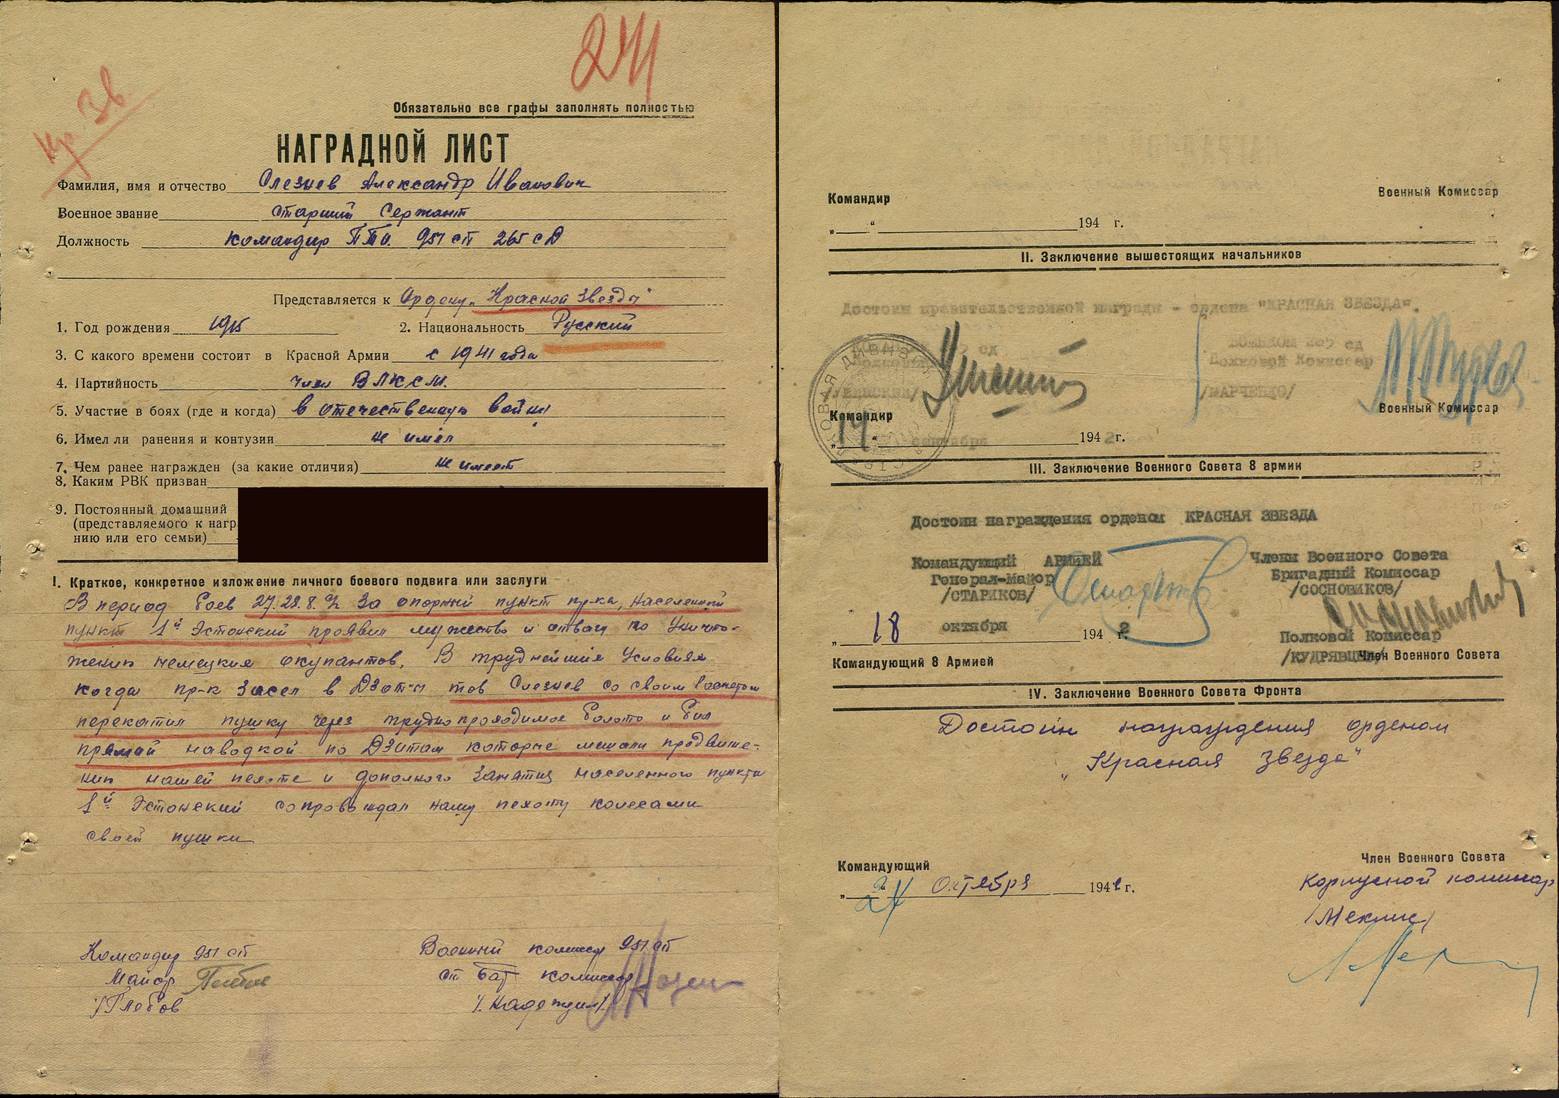 24
Кр. Зв.
Обязательно все графы заполнять полностью
НАГРАДНОЙ ЛИСТ
Фамилия, имя и отчество Слезнев Александр Иванович
Военное звание Старший Сержант
Должность Командир ПТО 951 СП 265 СД
Представляется к Ордену „Красной Звезды"
1. Год рождения 1915 2. Национальность Русский
3. С какого времени состоит в Красной Армии с 1941 года
4. Партийность член ВЛКСМ.
5. Участие в боях (где и когда) в отечественную войну
6. Имел ли ранения и контузии не имел
7. Чем ранее награжден (за какие отличия) не имеет
8. Каким РВК призван
9. Постоянный домашний
(представляемого к нагр
нию или его семьи)
I. Краткое, конкретное изложение личного боевого подвига или заслуги
В период боев 27.28.8. за опорный пункт пр-ка, населенный
пункт 1й Эстонский проявил мужество и отвагу по уничто-
жению немецких окупантов. В труднейших условиях
когда пр-к засел в Дзот-ы тов Слезнев со своим расчетом
перекатил пушку через трудно проходимое болото и бил
прямой наводкой по Дзотам которые мешали продвиже-
нию нашей пехоте и до полного занятия населенного пункта
1й Эстонский сопровождал нашу пехоту колесами
своей пушки
Командир 951 сп
Майор
/Глебов
Военный комиссар 951 сп
ст бат комиссар
/Надежин/
Командир Военный Комиссар
„ " 194 г.
II. Заключение вышестоящих начальников
Достоин правительственной награды - ордена "КРАСНАЯ ЗВЕЗДА".
сд ВОЕНКОМ 265 сд
Полковой Комиссар
/МАРЧЕНКО/
Командир Военный Комиссар
„14" сентября 1942 г.
III. Заключение Военного Совета 8 армии
Достоин награждения орденом КРАСНАЯ ЗВЕЗДА
Командующий АРМИЕЙ Члены Военного Совета
Генерал-Майор Бригадный Комиссар
/СТАРИКОВ/ /СОСНОВИКОВ/
„18 октября 1942 Полковой Комиссар
/КУДРЯВЦЕВ/
Командующий 8 Армией Член Военного Совета
IV. Заключение Военного Совета Фронта
Достоин награждения орденом
„Красная Звезда"
Командующий Член Военного Совета
„24" Октября 1942 г. Корпусной комиссар
/Мехлис/